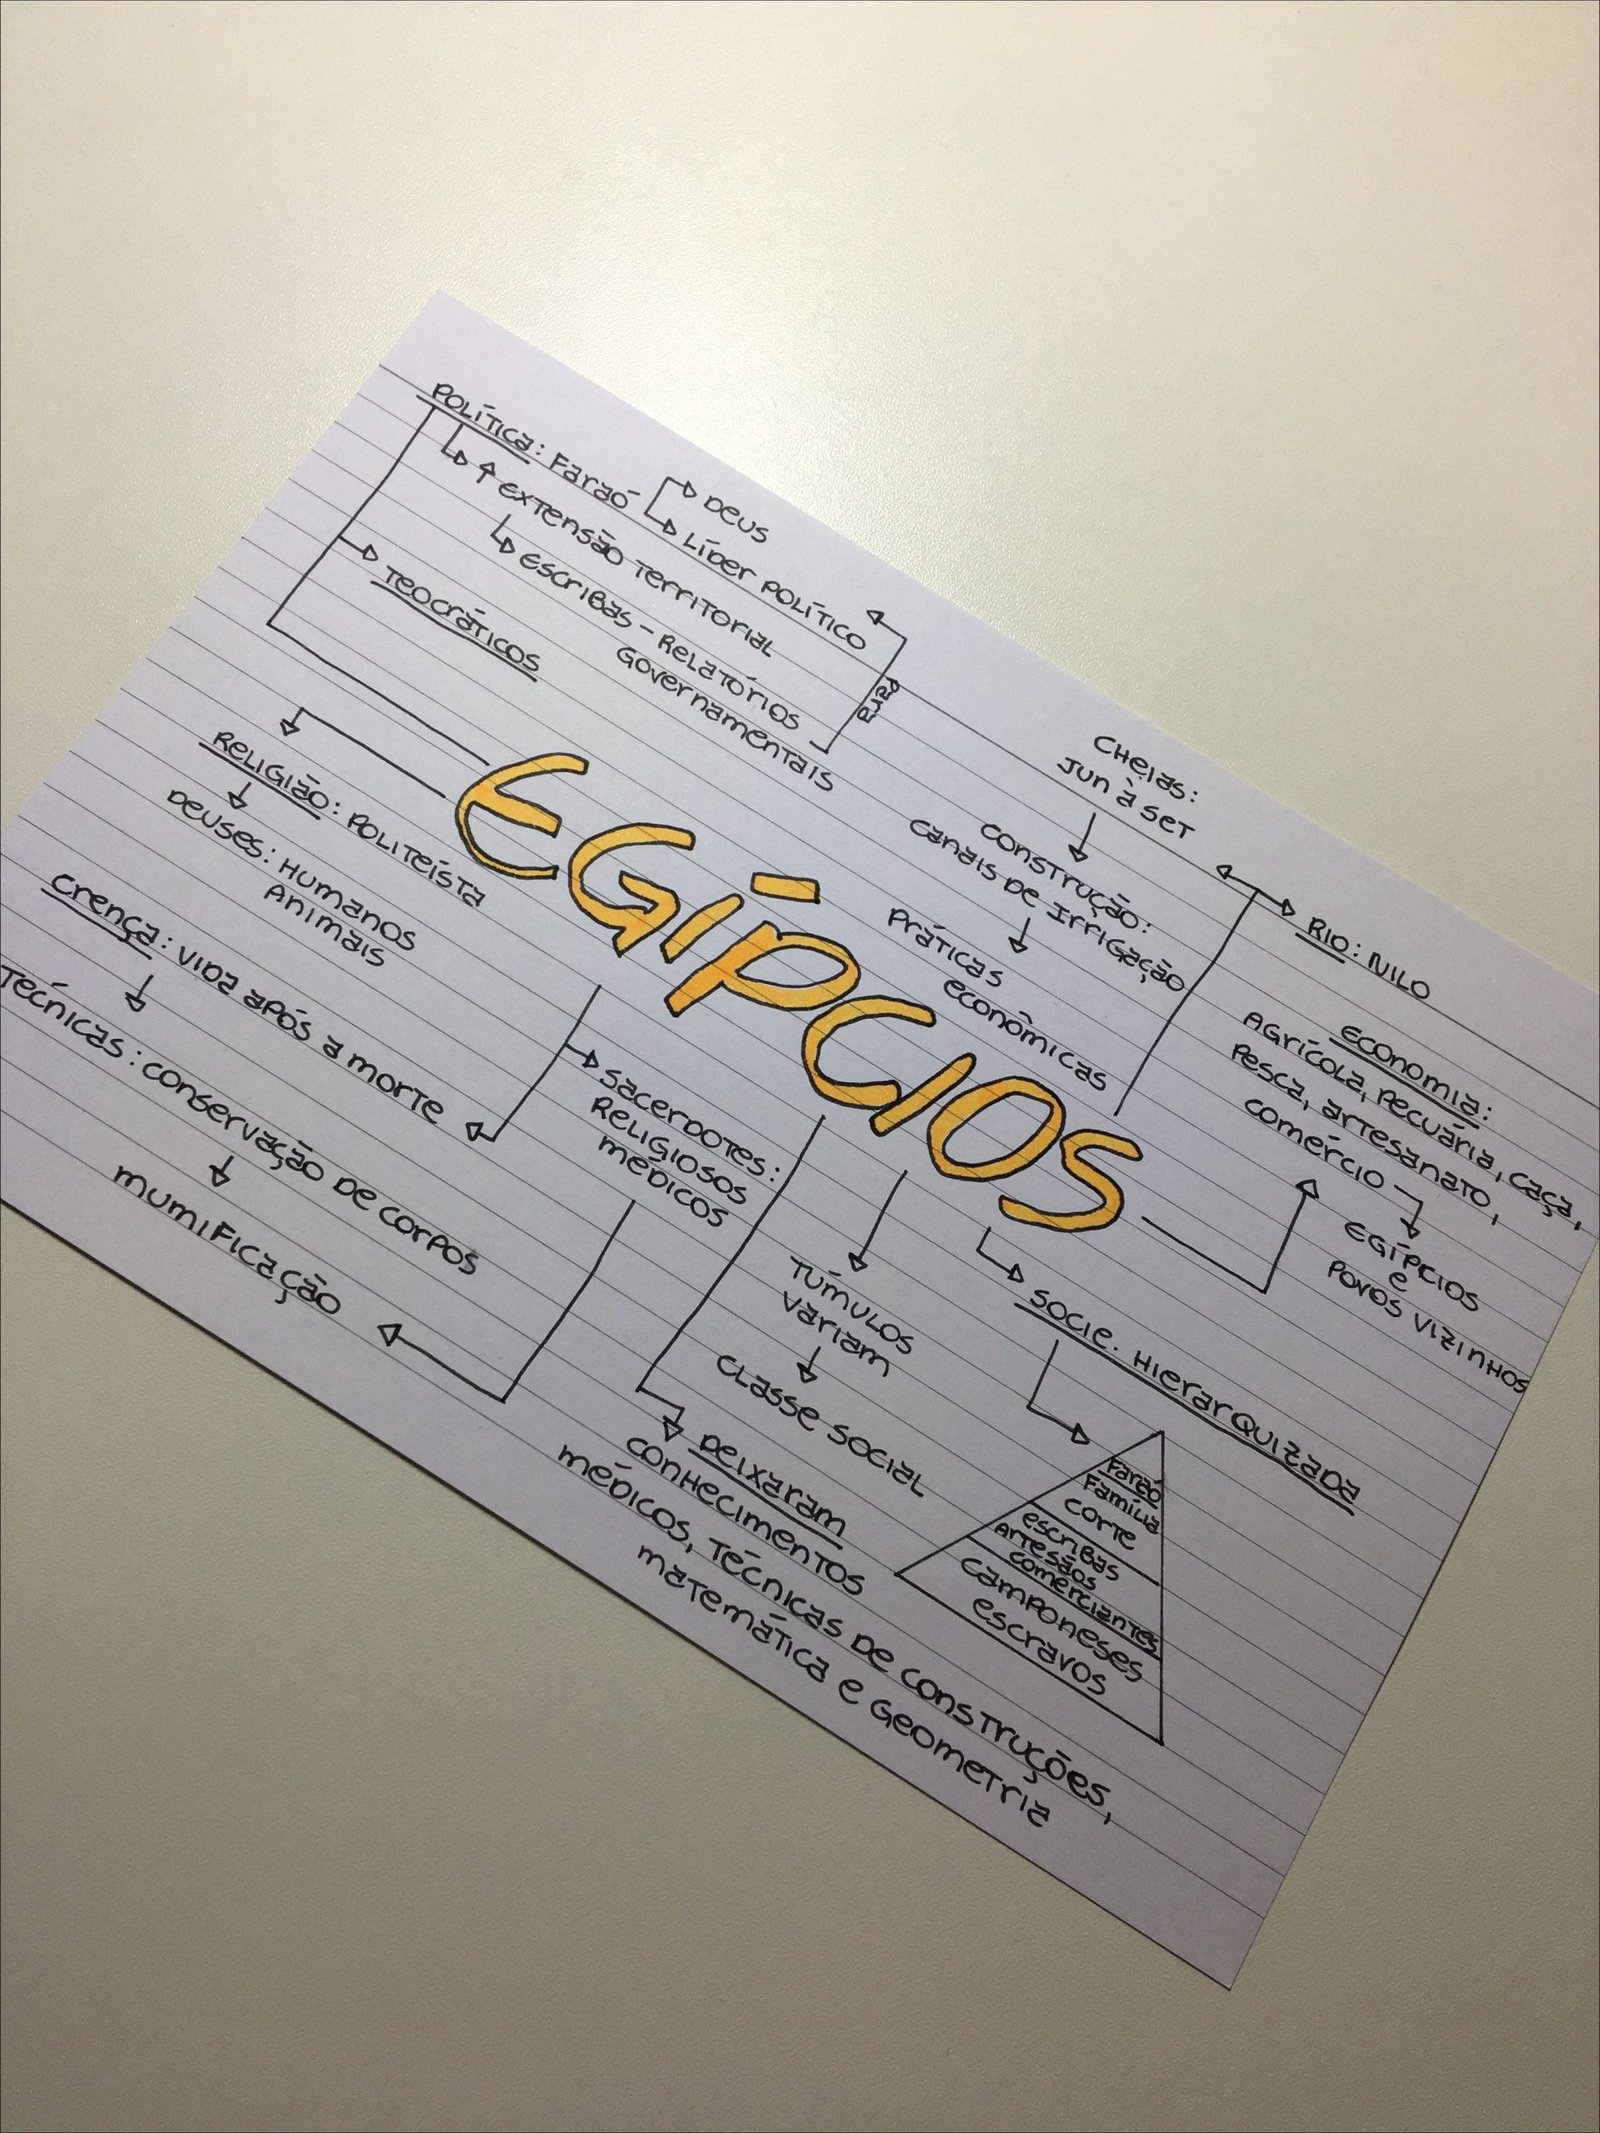 POLÍTICA: Faraó
DEUS
LÍDER POLÍTICO
↑ EXTENSÃO TERRITORIAL
ESCRIBAS - RELATÓRIOS
GOVERNAMENTAIS
Para
TEOCRÁTICOS
RELIGIÃO: POLITEÍSTA
DEUSES: HUMANOS
ANIMAIS
Crença: VIDA APÓS A MORTE
TÉCNICAS: CONSERVAÇÃO DE CORPOS
MUMIFICAÇÃO
EGÍPCIOS
SACERDOTES:
RELIGIOSOS
MÉDICOS
CHEIAS:
JUN À SET
CONSTRUÇÃO:
CANAIS DE IRRIGAÇÃO
PRÁTICAS
ECONÔMICAS
RIO: NILO
ECONOMIA:
AGRÍCOLA, PECUÁRIA, CAÇA,
PESCA, ARTESANATO,
COMÉRCIO
EGÍPCIOS
E
POVOS VIZINHOS
TÚMULOS
VARIAM
CLASSE SOCIAL
SOCIE. HIERARQUIZADA
Faraó
Família
CORTE
escribas
ARTESÃOS
comerciantes
camponeses
escravos
DEIXARAM
CONHECIMENTOS
MÉDICOS, TÉCNICAS DE CONSTRUÇÕES,
MATEMÁTICA E GEOMETRIA